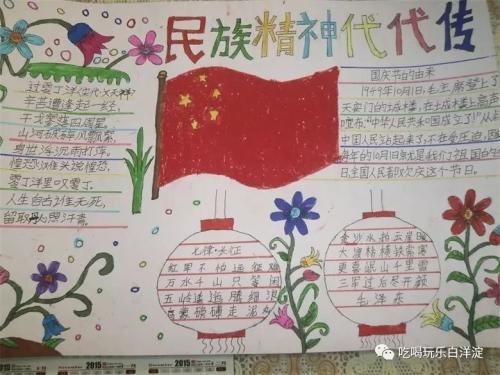 民族精神代代传
过零丁洋
辛苦遭逢起一经
干戈寥落四周星
山河破碎风飘絮
身世浮沉雨打萍
惶恐滩头说惶恐
零丁洋里叹零丁
人生自古谁无死
留取丹心照汗青
国庆节的由来
1949年10月1日，毛主席登上
天安门的城楼，在城楼上高
"中华人民共和国成立了!"从
中国人民站起来了
年的10月1日
日全国人民都欢庆这个节日。
七律·长征
红军不怕远征难
万水千山只等闲
五岭逶迤腾细浪
乌蒙磅礴走泥
金沙水拍云崖暖
大渡桥横铁索寒
更喜岷山千里雪
三军过后尽开颜
毛泽东
吃喝玩乐白洋淀
2015
2015